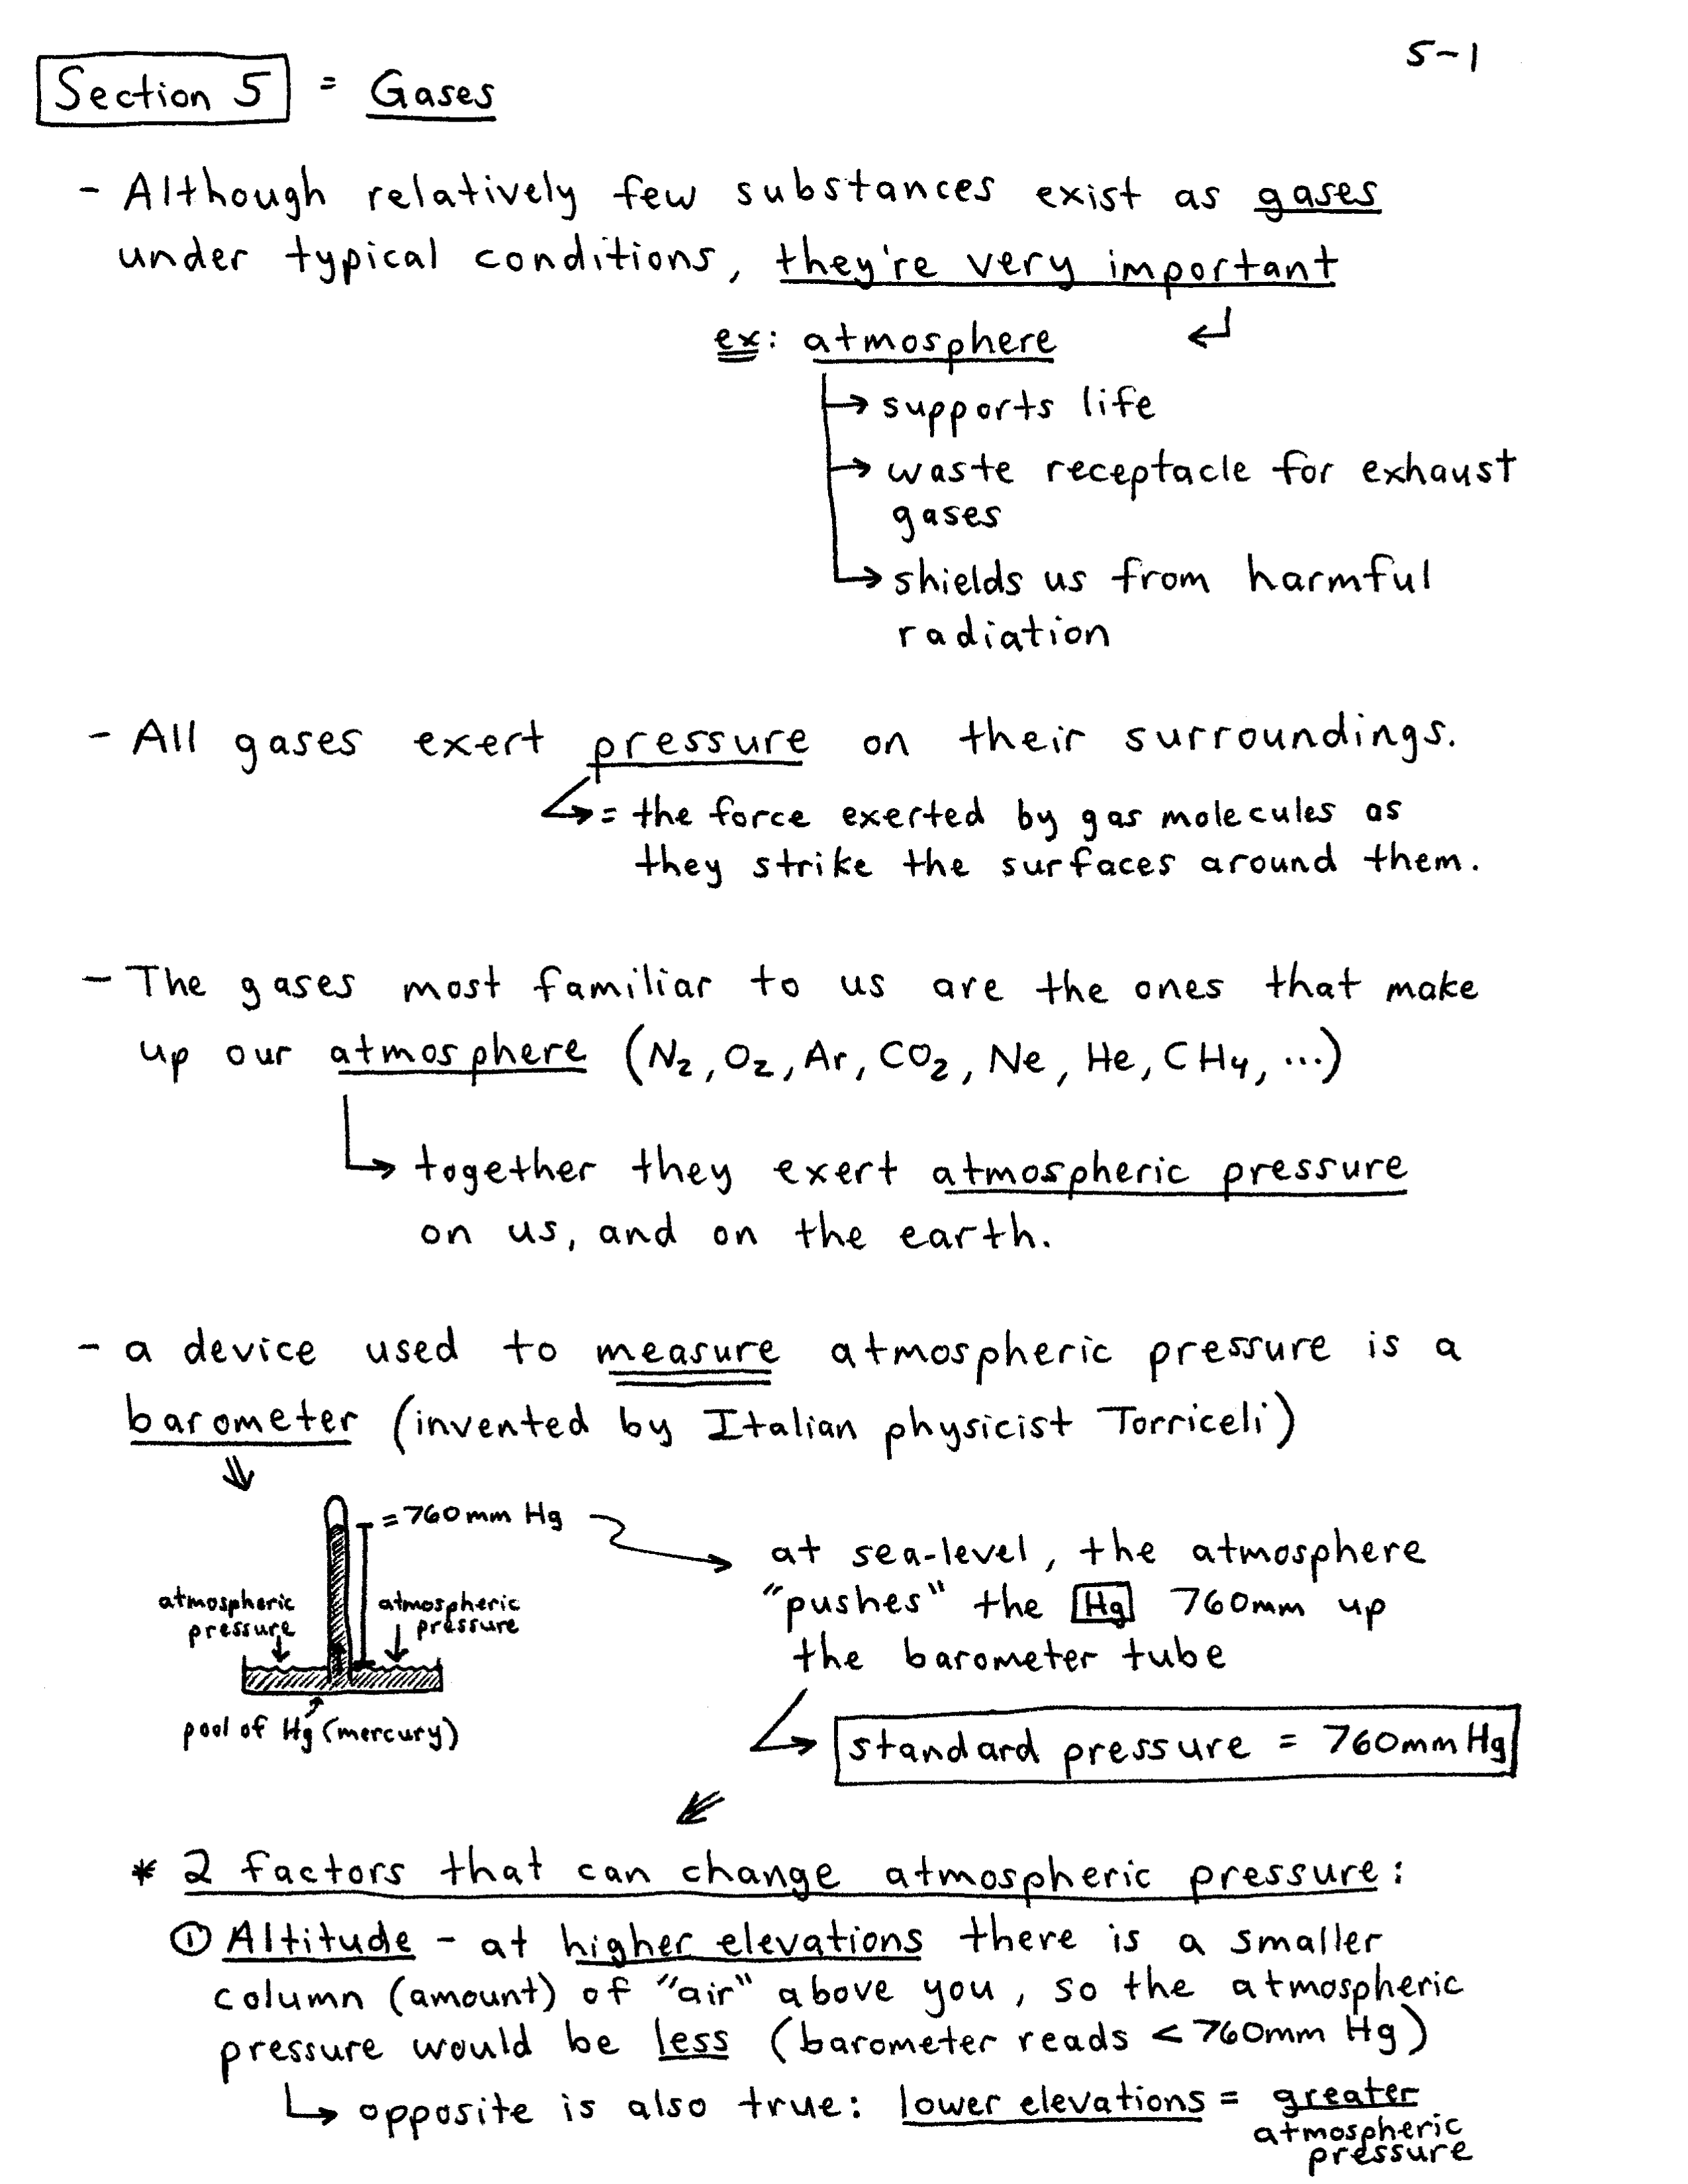 5-1
Section 5 = Gases
- Although relatively few substances exist as gases
under typical conditions, they're very important
ex: atmosphere
supports life
waste receptacle for exhaust
gases
shields us from harmful
radiation
- All gases exert pressure on their surroundings.
= the force exerted by gas molecules as
they strike the surfaces around them.
- The gases most familiar to us are the ones that make
up our atmosphere (N₂, O₂, Ar, CO₂, Ne, He, CH₄, ...)
together they exert atmospheric pressure
on us, and on the earth.
- a device used to measure atmospheric pressure is a
barometer (invented by Italian physicist Torriceli)
= 760mm Hg
atmospheric
pressure
atmospheric
pressure
pool of Hg (mercury)
at sea-level, the atmosphere
"pushes" the Hg 760mm up
the barometer tube
standard pressure = 760mm Hg
* 2 factors that can change atmospheric pressure:
① Altitude - at higher elevations there is a smaller
column (amount) of "air" above you, so the atmospheric
pressure would be less (barometer reads < 760mm Hg)
opposite is also true: lower elevations = greater
atmospheric
pressure